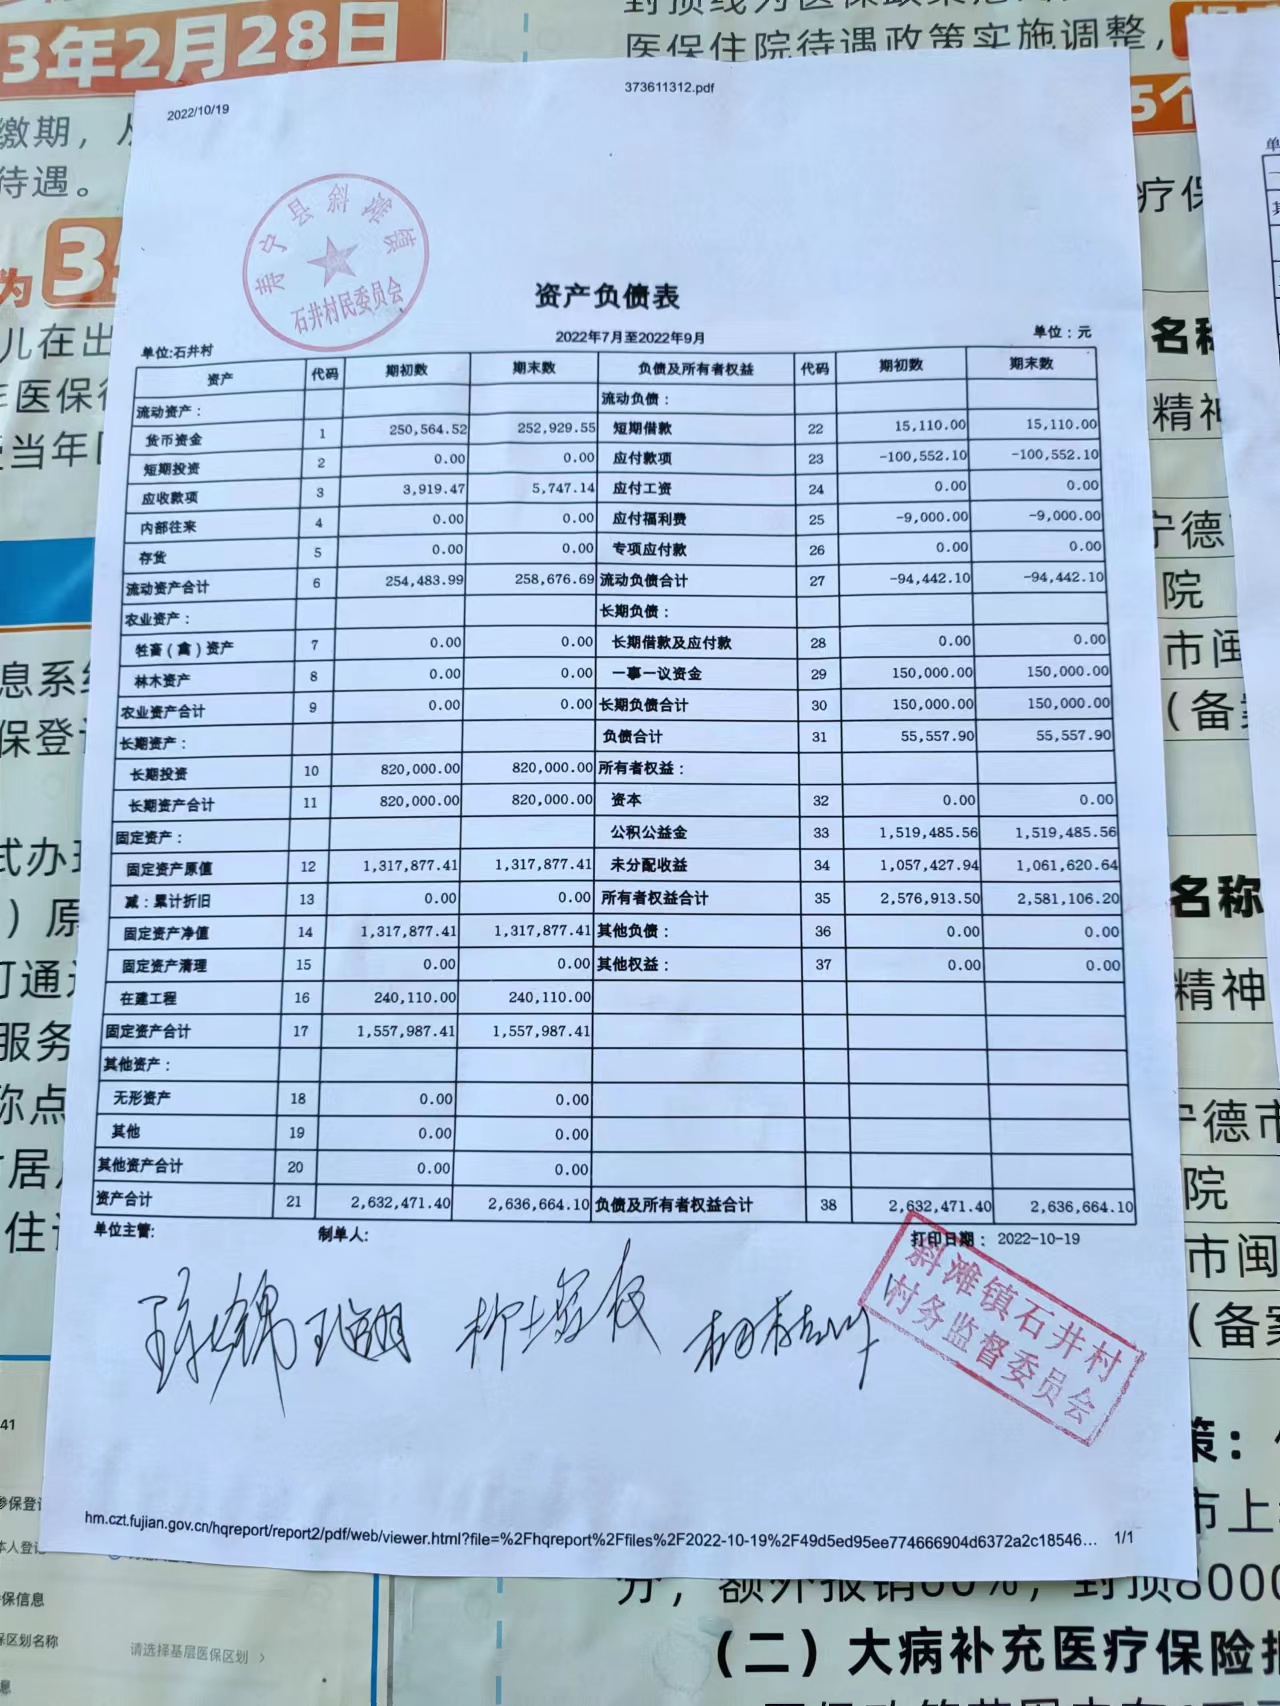 3年2月28日
缴期，
待遇。
为
儿在出
医保待
当年
息系统
保登
式办理
）原
服务
称点
居
住
41
参保登记
本人登记
保信息
保区划名称
请选择基层医保区划
医保住院待遇政策实施调整，
5个
疗保
名称
精神
宁德市
院
市闽
（备案
名称
精神
宁德市
院
市闽
（备案
策：
市上
2022/10/19
373611312.pdf
寿宁县斜滩镇
石井村民委员会
资产负债表
2022年7月至2022年9月
单位:石井村 单位：元
资产 代码 期初数 期末数 负债及所有者权益 代码 期初数 期末数
流动资产： 流动负债：
货币资金 1 250,564.52 252,929.55 短期借款 22 15,110.00 15,110.00
短期投资 2 0.00 0.00 应付款项 23 -100,552.10 -100,552.10
应收款项 3 3,919.47 5,747.14 应付工资 24 0.00 0.00
内部往来 4 0.00 0.00 应付福利费 25 -9,000.00 -9,000.00
存货 5 0.00 0.00 专项应付款 26 0.00 0.00
流动资产合计 6 254,483.99 258,676.69 流动负债合计 27 -94,442.10 -94,442.10
农业资产： 长期负债：
牲畜（禽）资产 7 0.00 0.00 长期借款及应付款 28 0.00 0.00
林木资产 8 0.00 0.00 一事一议资金 29 150,000.00 150,000.00
农业资产合计 9 0.00 0.00 长期负债合计 30 150,000.00 150,000.00
长期资产： 负债合计 31 55,557.90 55,557.90
长期投资 10 820,000.00 820,000.00 所有者权益：
长期资产合计 11 820,000.00 820,000.00 资本 32 0.00 0.00
固定资产： 公积公益金 33 1,519,485.56 1,519,485.56
固定资产原值 12 1,317,877.41 1,317,877.41 未分配收益 34 1,057,427.94 1,061,620.64
减：累计折旧 13 0.00 0.00 所有者权益合计 35 2,576,913.50 2,581,106.20
固定资产净值 14 1,317,877.41 1,317,877.41 其他负债： 36 0.00 0.00
固定资产清理 15 0.00 0.00 其他权益： 37 0.00 0.00
在建工程 16 240,110.00 240,110.00
固定资产合计 17 1,557,987.41 1,557,987.41
其他资产：
无形资产 18 0.00 0.00
其他 19 0.00 0.00
其他资产合计 20 0.00 0.00
资产合计 21 2,632,471.40 2,636,664.10 负债及所有者权益合计 38 2,632,471.40 2,636,664.10
单位主管: 制单人: 打印日期： 2022-10-19
斜滩镇石井村
村务监督委员会
hm.czt.fujian.gov.cn/hqreport/report2/pdf/web/viewer.html?file=%2Fhqreport%2Ffiles%2F2022-10-19%2F49d5ed95ee774666904d6372a2c18546... 1/1
分，额外报销60%，封顶8000
（二）大病补充医疗保险报